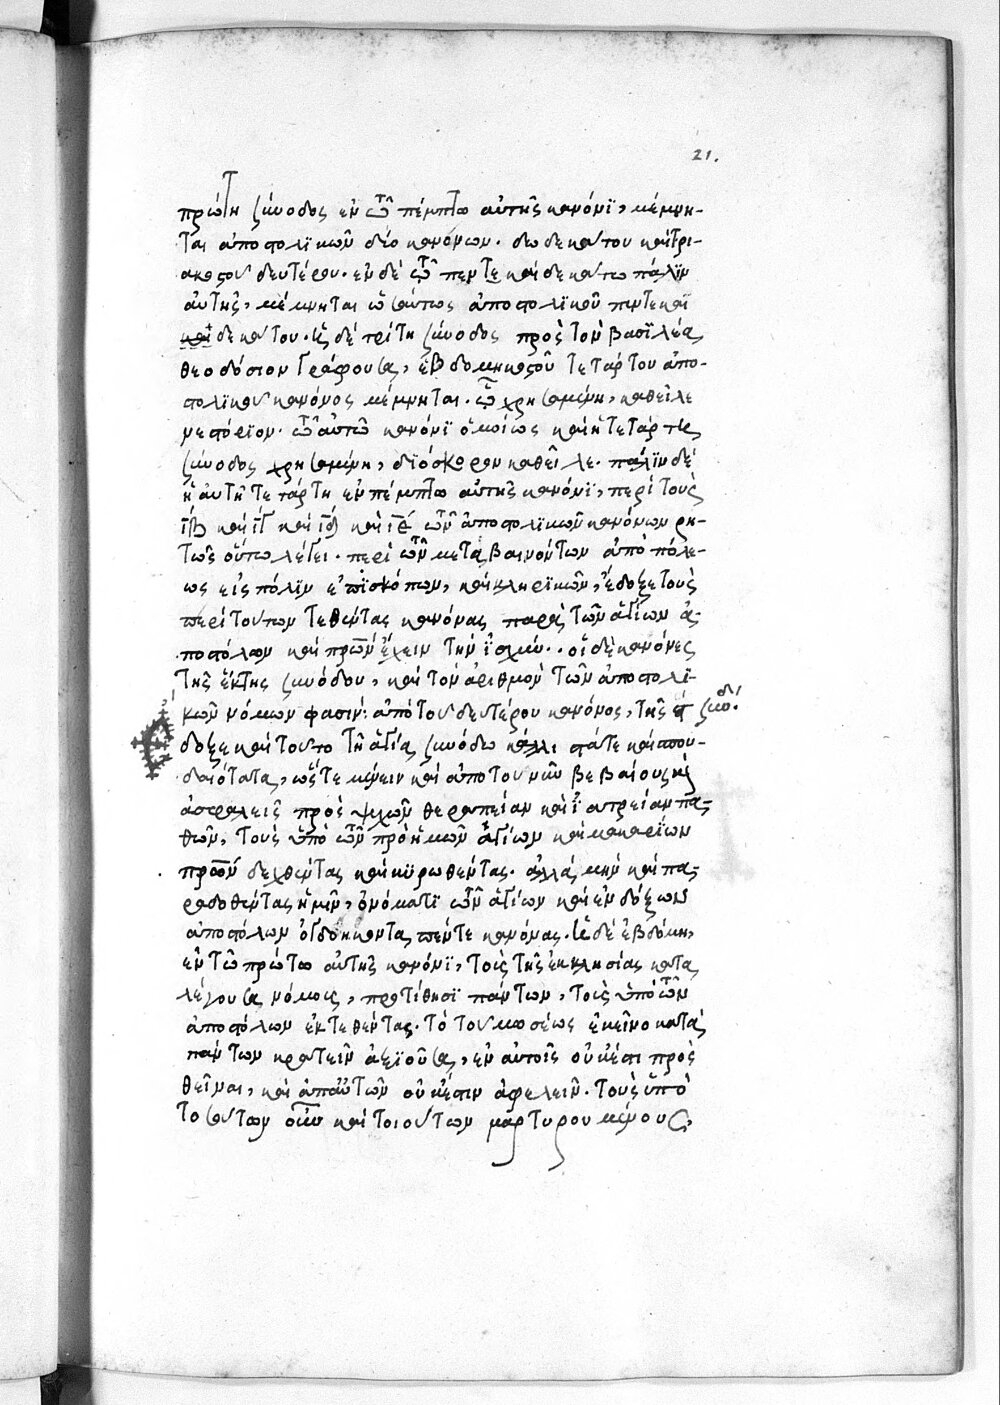 21.
πρώτη σύνοδος ἐν τῶ πέμπτω αὐτῆς κανόνι, μέμνη-
ται ἀποστολικῶν δύο κανόνων. δωδεκάτου καὶ τρι-
ακοστοῦ δευτέρου. ἐν δὲ τῶ πεντεκαιδεκάτω πάλιν
αὐτῆς, μέμνηται ὡσαύτως ἀποστολικοῦ πεντεκαι
δεκάτου. ἡ δὲ τρίτη σύνοδος πρὸς τὸν βασιλέα
θεοδόσιον γράφουσα, ἑβδομηκοστοῦ τετάρτου ἀπο-
στολικοῦ κανόνος μέμνηται. ᾧ χρησαμένη, καθεῖλε
νεστόριον. τῶ αὐτῶ κανόνι ὁμοίως καὶ ἡ τετάρτη
σύνοδος χρησαμένη, διόσκορον καθεῖλε. πάλιν δὲ
ἡ αὐτὴ τετάρτη ἐν πέμπτω αὐτῆς κανόνι, περὶ τοὺς
ιβ καὶ ιγ καὶ ιδ καὶ ιε τῶν ἀποστολικῶν κανόνων ῥη-
τῶς οὕτω λέγει. περὶ τῶν μεταβαινόντων ἀπὸ πόλε-
ως εἰς πόλιν ἐπισκόπων, καὶ κληρικῶν, ἔδοξε τοὺς
περὶ τούτων τεθέντας κανόνας παρὰ τῶν ἁγίων ἀ-
ποστόλων καὶ πρων ἔχειν τὴν ἰσχύν. οἱ δὲ κανόνες
τῆς ἕκτης συνόδου, καὶ τὸν ἀριθμὸν τῶν ἀποστολι-
κῶν νόμων φασίν· ἀπὸ τοῦ δευτέρου κανόνος, τῆς ϛ συνόδ.
Ἔδοξε καὶ τοῦτο τῆ ἁγία συνόδω κάλλιστά τε καὶ σπου-
δαιότατα, ὥστε μένειν καὶ ἀπὸ τοῦ νῦν βεβαίους καὶ
ἀσφαλεῖς πρὸς ψυχῶν θεραπείαν καὶ ἰατρείαν πα-
θῶν, τοὺς ὑπὸ τῶν πρὸ ἡμῶν ἁγίων καὶ μακαρίων
πρων δεχθέντας καὶ κυρωθέντας. ἀλλὰ μὴν καὶ πα-
ραδοθέντας ἡμῖν, ὀνόματι τῶν ἁγίων καὶ ἐνδόξων
ἀποστόλων ὀγδοήκοντα πέντε κανόνας. ἡ δὲ ἑβδόμη,
ἐν τῶ πρώτω αὐτῆς κανόνι, τοῖς τῆς ἐκκλησίας κατα
λέγουσα νόμοις, προτίθησι πάντων, τοῖς ὑπὸ τῶν
ἀποστόλων ἐκτεθέντας. τὸ τοῦ μωσέως ἐκεῖνο κατὰ
πάντων κρατεῖν ἀξιοῦσα, ἐν αὐτοῖς οὐκ ἔστι προσ
θεῖναι, καὶ ἀπ' αὐτῶν οὐκ ἔστιν ἀφελεῖν. τοὺς ὑπὸ
τοσούτων οὖν καὶ τοιούτων μαρτυρουμένους,